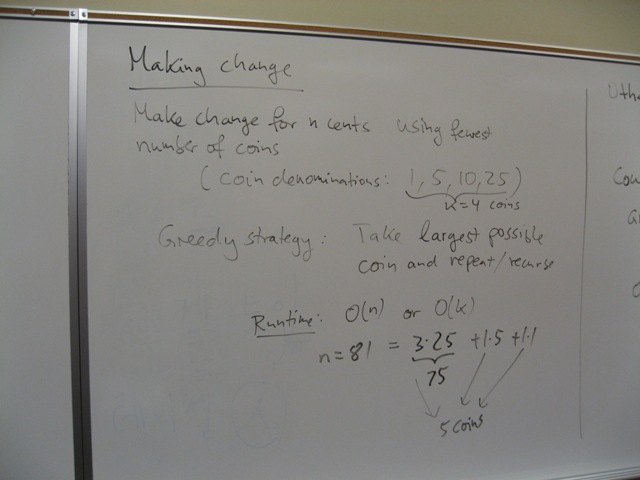 Making change
Make change for n cents using fewest
number of coins
(coin denominations: 1, 5, 10, 25)
k=4 coins
Greedy strategy: Take largest possible
coin and repeat/recurse
Runtime: O(n) or O(k)
n=81 = 3·25 +1·5 +1·1
75
5 coins